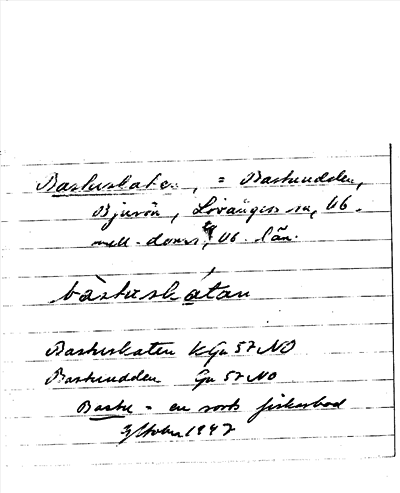 Bastuskaten, = Bastuudden,
Bjurön, Lövångers sn, Vb.
mell. doms., Vb. län.
bàstuskátan
Bastuskaten KGn 57 NO
Bastuudden Gn 57 NO
Bastu - en sorts fiskarbod
1947